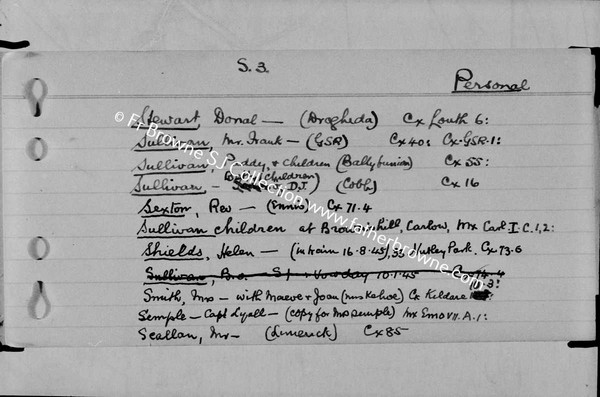 S.3.
Personal
Stewart, Donal — (Drogheda) Cx Louth 6:
Sullivan, Mr. Frank — (GSR) Cx 40: Cx-GSR-1:
Sullivan Paddy + children (Ballybunion) Cx 55:
Sullivan - D.J. (children) (Cobh) Cx 16
Sexton, Rev — (Ennis) Cx 71.4
Sullivan children at Browne's hill, Carlow, Mx Carl I.C.1,2:
Shields, Helen — (in train 16.8.45), 35 Park. Cx 73.6
Sullivan, Bro. S.J. 10.1.45 74.4
Smith, Mrs — with Maeve + Joan (Mrs Kehoe) Cx Kildare 3:
Semple — Capt Lyall — (copy for Mrs Semple) Mx Emo VII. A.1:
Scallan, Mr — (Limerick) Cx 85
© Fr Browne SJ Collection www.fatherbrowne.com